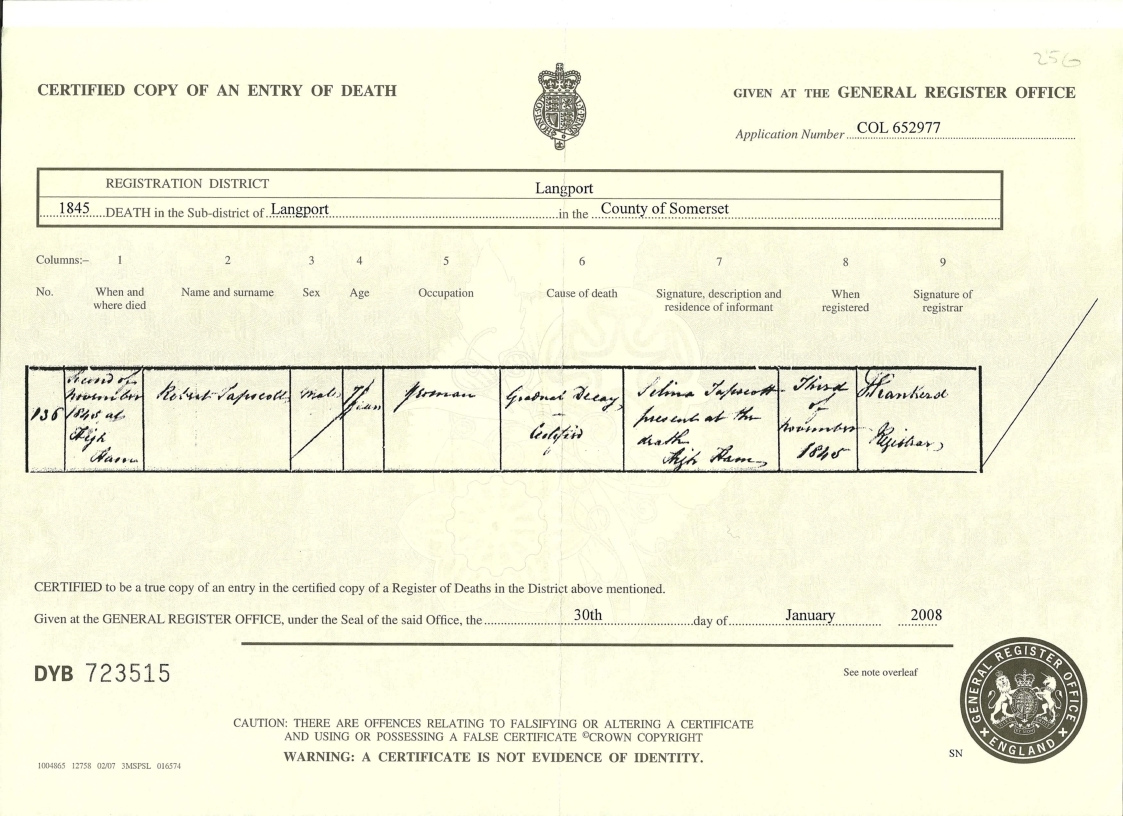 256
CERTIFIED COPY OF AN ENTRY OF DEATH
GIVEN AT THE GENERAL REGISTER OFFICE
Application Number COL 652977
REGISTRATION DISTRICT Langport
1845 DEATH in the Sub-district of Langport in the County of Somerset
Columns:– 1 2 3 4 5 6 7 8 9
No. When and where died Name and surname Sex Age Occupation Cause of death Signature, description and residence of informant When registered Signature of registrar
136
Second of
November
1845 at
High
Ham
Robert Tapscott
Male
years
Yeoman
Gradual Decay
Certified
Selina Tapscott
present at the
death
High Ham
Third
of
November
1845
Registrar
CERTIFIED to be a true copy of an entry in the certified copy of a Register of Deaths in the District above mentioned.
Given at the GENERAL REGISTER OFFICE, under the Seal of the said Office, the 30th day of January 2008
DYB 723515
See note overleaf
CAUTION: THERE ARE OFFENCES RELATING TO FALSIFYING OR ALTERING A CERTIFICATE
AND USING OR POSSESSING A FALSE CERTIFICATE ©CROWN COPYRIGHT
WARNING: A CERTIFICATE IS NOT EVIDENCE OF IDENTITY.
GENERAL REGISTER OFFICE
ENGLAND
SN
1004865 12758 02/07 3MSPSL 016574